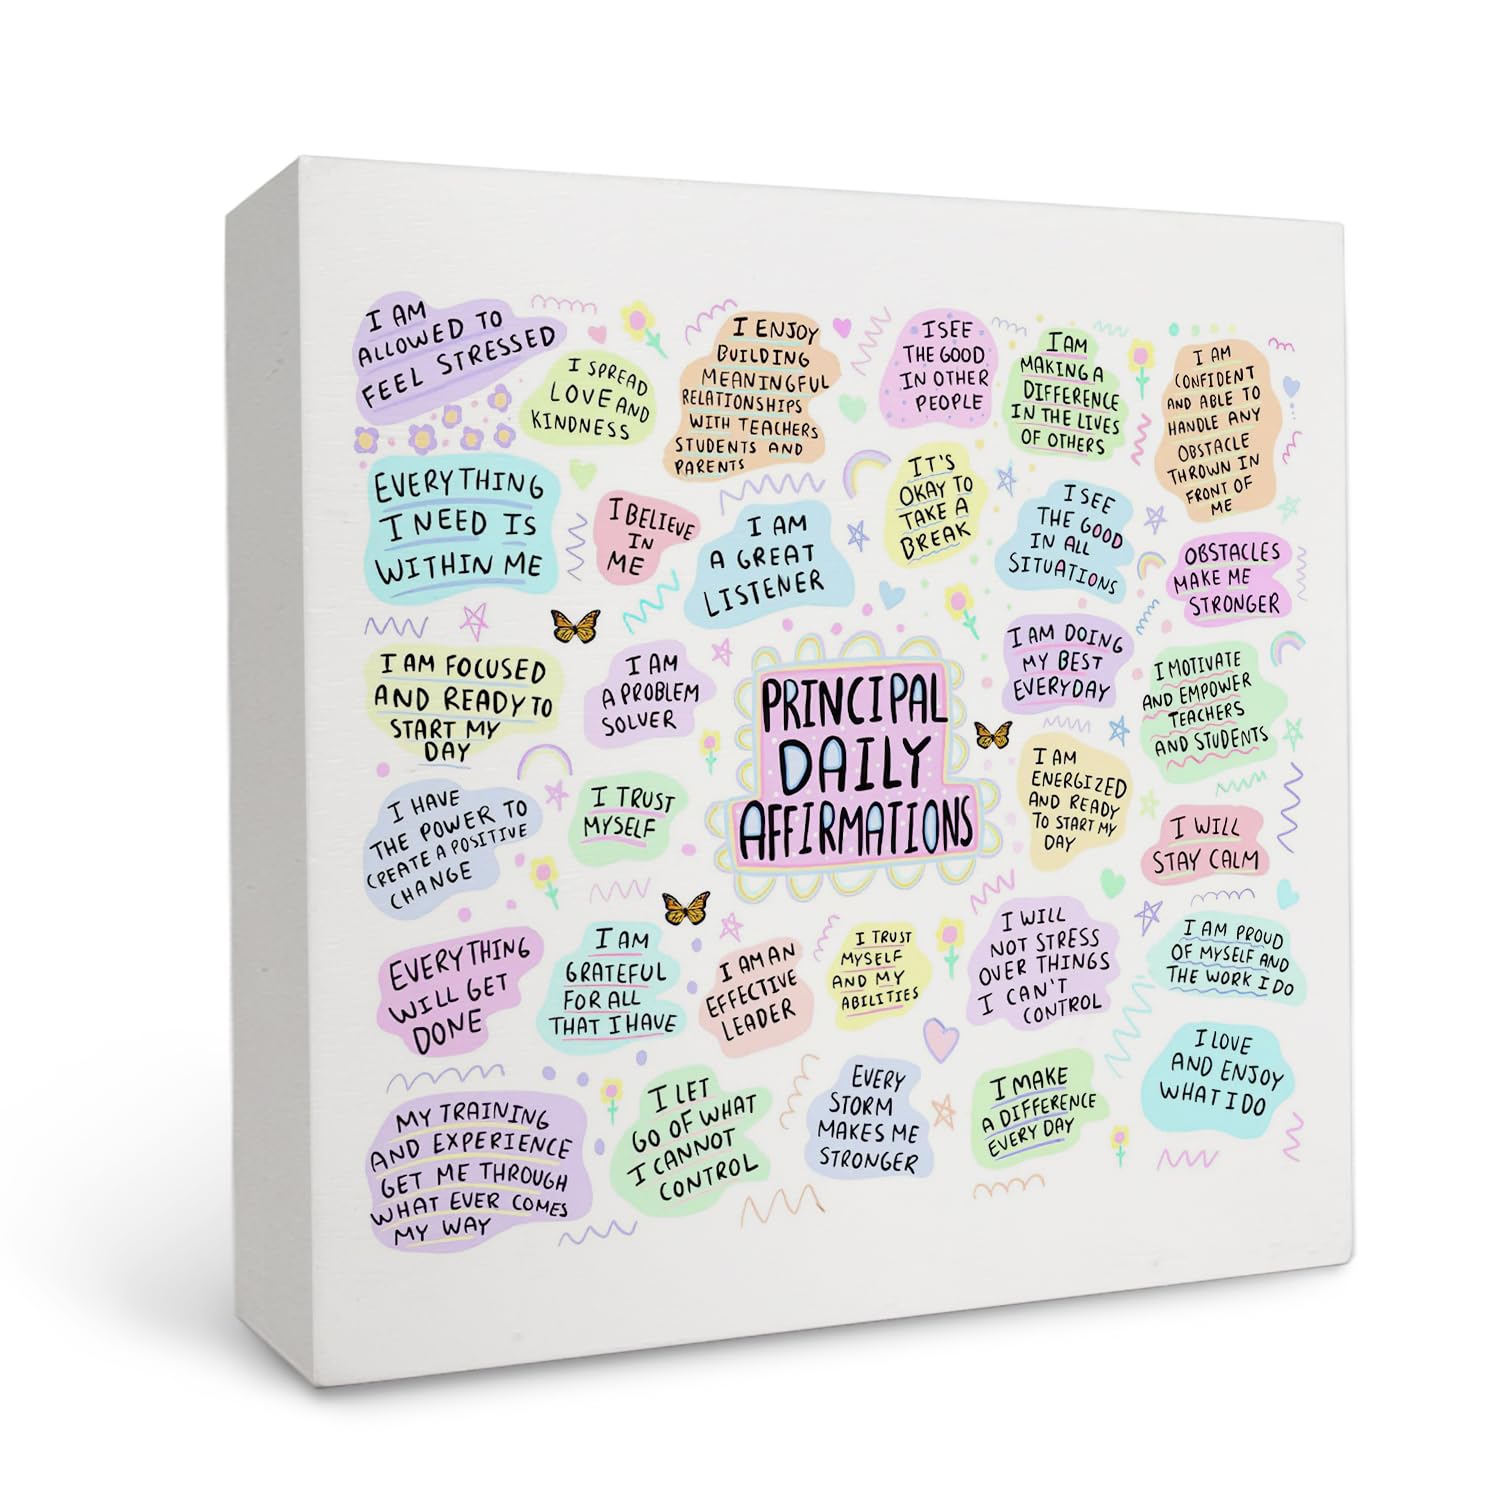 I AM
ALLOWED TO
FEEL STRESSED
I SPREAD
LOVE AND
KINDNESS
I ENJOY
BUILDING
MEANINGFUL
RELATIONSHIPS
WITH TEACHERS
STUDENTS AND
PARENTS
I SEE
THE GOOD
IN OTHER
PEOPLE
I AM
MAKING A
DIFFERENCE
IN THE LIVES
OF OTHERS
I AM
CONFIDENT
AND ABLE TO
HANDLE ANY
OBSTACLE
THROWN IN
FRONT OF
ME
EVERYTHING
I NEED IS
WITHIN ME
I BELIEVE
IN
ME
I AM
A GREAT
LISTENER
IT'S
OKAY TO
TAKE A
BREAK
I SEE
THE GOOD
IN ALL
SITUATIONS
OBSTACLES
MAKE ME
STRONGER
I AM FOCUSED
AND READY TO
START MY
DAY
I AM
A PROBLEM
SOLVER
PRINCIPAL
DAILY
AFFIRMATIONS
I AM DOING
MY BEST
EVERYDAY
I MOTIVATE
AND EMPOWER
TEACHERS
AND STUDENTS
I HAVE
THE POWER TO
CREATE A POSITIVE
CHANGE
I TRUST
MYSELF
I AM
ENERGIZED
AND READY
TO START MY
DAY
I WILL
STAY CALM
EVERYTHING
WILL GET
DONE
I AM
GRATEFUL
FOR ALL
THAT I HAVE
I AM AN
EFFECTIVE
LEADER
I TRUST
MYSELF
AND MY
ABILITIES
I WILL
NOT STRESS
OVER THINGS
I CAN'T
CONTROL
I AM PROUD
OF MYSELF AND
THE WORK I DO
MY TRAINING
AND EXPERIENCE
GET ME THROUGH
WHAT EVER COMES
MY WAY
I LET
GO OF WHAT
I CANNOT
CONTROL
EVERY
STORM
MAKES ME
STRONGER
I MAKE
A DIFFERENCE
EVERY DAY
I LOVE
AND ENJOY
WHAT I DO